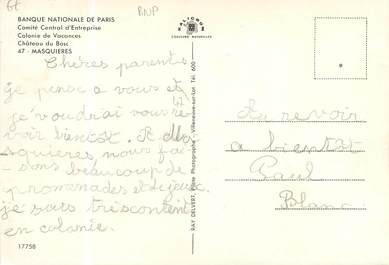 6t
BNP
BANQUE NATIONALE DE PARIS
Comité Central d'Entreprise
Colonie de Vacances
Château du Bosc
47 - MASQUIERES
Chères parents
je pense a vous et
je voudrai vous re
voir bientot. A Ma
squieres nous fai
- sons beaucoup de
promenades et de jeux.
je suis très content
en colonie.
17758
RAY DELVERT, Pilote Photographe - Villeneuve-sur-Lot Tél. 600
COULEURS NATURELLES
Au revoir
a bientôt
Paul
Blanc